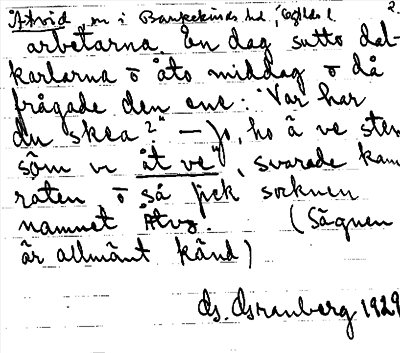 Åtvid, sn i Bankekinds hd, Östg. l. 2.
arbetarna. En dag sutto dal-
karlarna o åto middag o då
frågade den ene: "Var har
du skea?" — Jo, ho ä ve sten
sôm vi åt ve", svarade kam
raten, o så fick socknen
namnet Åtvid. (Sägnen
är allmänt känd)
1929